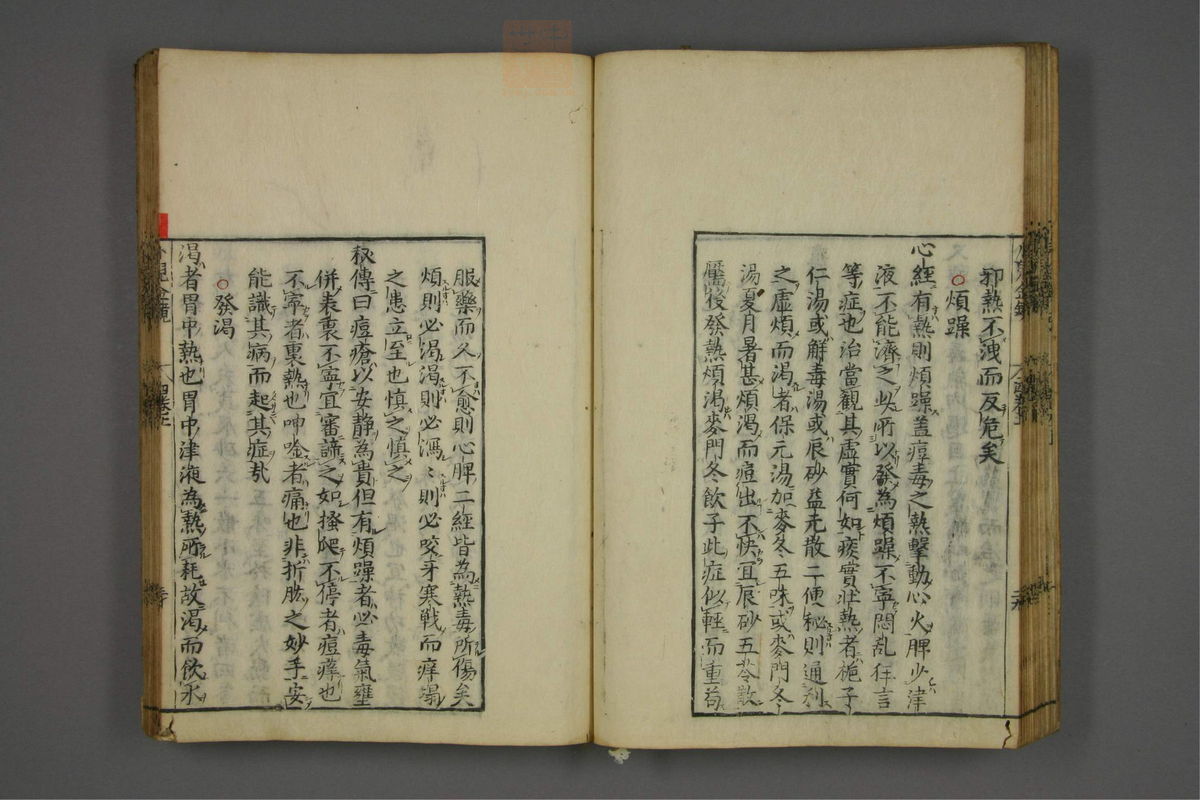 邪熱不洩而反危矣
○煩躁
心經有熱則煩躁蓋痘毒之熱擊動心火脾少津
液不能濟之此所以發為煩躁不寧悶亂狂言
等症也治當觀其虛實何如痰實壯熱者梔子
仁湯或解毒湯或辰砂益元散二便秘則通利
之虛煩而渴者保元湯加麥冬五味或麥門冬
湯夏月暑甚煩渴而痘出不快宜辰砂五苓散
靨後發熱煩渴麥門冬飲子此症似輕而重苟
服藥而久不愈則心脾二經皆為熱毒所傷矣
煩則必渴渴則必瀉〻則必咬牙寒戰而痒塌
之患立至也慎之慎之
秘傳曰痘瘡以安静為貴但有煩躁者必毒氣壅
併表裏不寧宜審諦之如搔爬不停者痘痒也
不寧者裏熱也呻唫者痛也非折肱之妙手安
能識其病而起其症㢤
○發渴
渴者胃中熱也胃中津液為熱所耗故渴而飲水